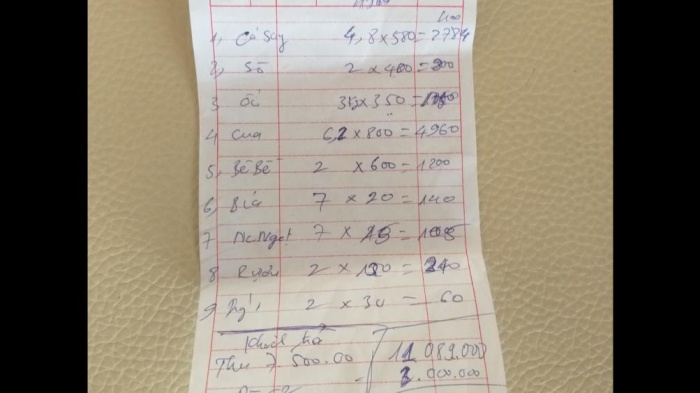 1, Cá Sủ 4,8 x 580 = 2784
2, Sò 2 x 400 = 800
3 Ốc 3,5 x 350 =
4 Cua 6,2 x 800 = 4960
5, Bề Bề 2 x 600 = 1200
6, Bia 7 x 20 = 140
7 Nc Ngọt 7 x 15 = 105
8 Rượu 2 x 120 = 240
9 2 x 30 = 60
Khách trả
Thu 7 500.00 11.089.000
3.000.000